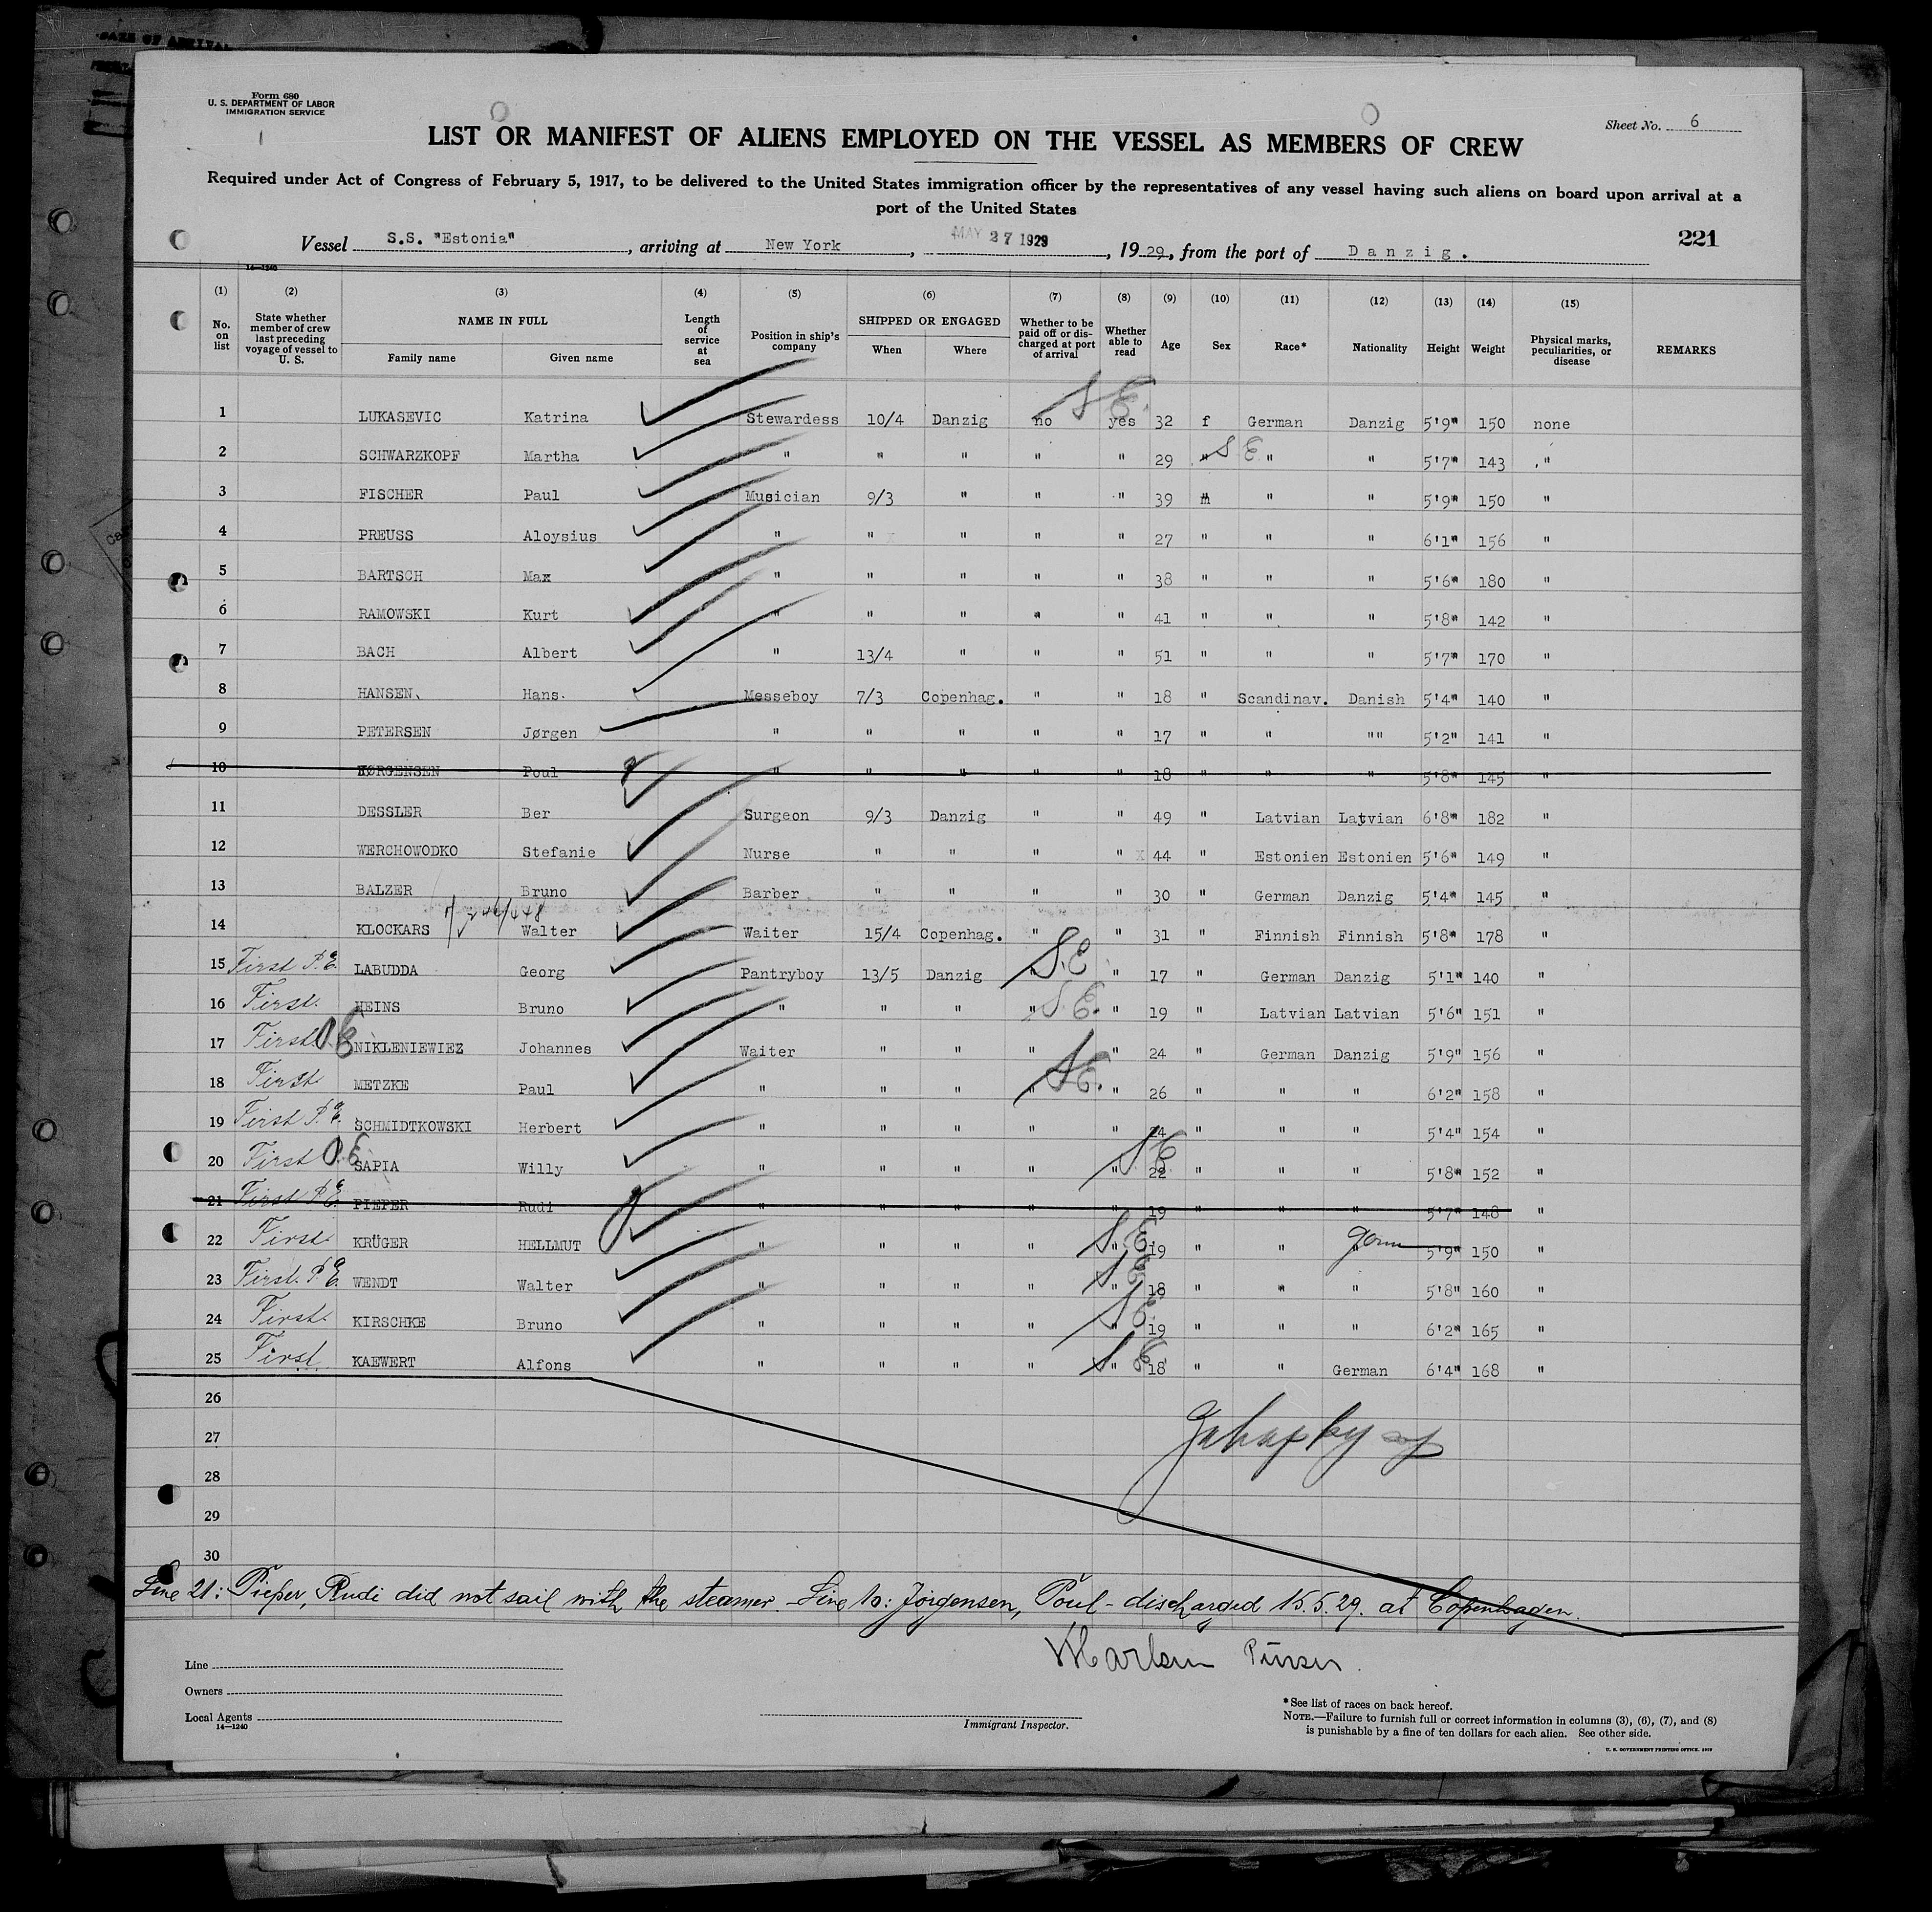 Form 680
U. S. DEPARTMENT OF LABOR
IMMIGRATION SERVICE
Sheet No. 6
LIST OR MANIFEST OF ALIENS EMPLOYED ON THE VESSEL AS MEMBERS OF CREW
Required under Act of Congress of February 5, 1917, to be delivered to the United States immigration officer by the representatives of any vessel having such aliens on board upon arrival at a
port of the United States
Vessel S.S. "Estonia", arriving at New York, MAY 27 1929, 1929, from the port of Danzig.
221
14—1240
(1) (2) (3) (4) (5) (6) (7) (8) (9) (10) (11) (12) (13) (14) (15)
No. on list State whether member of crew last preceding voyage of vessel to U. S. NAME IN FULL Family name Given name Length of service at sea Position in ship's company SHIPPED OR ENGAGED When Where Whether to be paid off or discharged at port of arrival Whether able to read Age Sex Race* Nationality Height Weight Physical marks, peculiarities, or disease REMARKS
1 LUKASEVIC Katrina Stewardess 10/4 Danzig no yes 32 f German Danzig 5'9" 150 none
2 SCHWARZKOPF Martha " " " " " 29 " " " 5'7" 143 "
3 FISCHER Paul Musician 9/3 " " " 39 m " " 5'9" 150 "
4 PREUSS Aloysius " " " " " 27 " " " 6'1" 156 "
5 BARTSCH Max " " " " " 38 " " " 5'6" 180 "
6 RAMOWSKI Kurt " " " " " 41 " " " 5'8" 142 "
7 BACH Albert " 13/4 " " " 51 " " " 5'7" 170 "
8 HANSEN Hans Messeboy 7/3 Copenhag. " " 18 " Scandinav. Danish 5'4" 140 "
9 PETERSEN Jørgen " " " " " 17 " " "" 5'2" 141 "
10 JØRGENSEN Poul " " " " " 18 " " " 5'8" 145 "
11 DESSLER Ber Surgeon 9/3 Danzig " " 49 " Latvian Latvian 6'8" 182 "
12 WERCHOWODKO Stefanie Nurse " " " " 44 " Estonien Estonien 5'6" 149 "
13 BALZER Bruno Barber " " " " 30 " German Danzig 5'4" 145 "
14 KLOCKARS Walter Waiter 15/4 Copenhag. " " 31 " Finnish Finnish 5'8" 178 "
15 First P.E. LABUDDA Georg Pantryboy 13/5 Danzig " S.E. " 17 " German Danzig 5'1" 140 "
16 First HEINS Bruno " " " " S.E. " 19 " Latvian Latvian 5'6" 151 "
17 First NIKLENIEWIEZ Johannes Waiter " " " " 24 " German Danzig 5'9" 156 "
18 First METZKE Paul " " " " S.E. " 26 " " " 6'2" 158 "
19 First P.E. SCHMIDTKOWSKI Herbert " " " " " 24 " " " 5'4" 154 "
20 First SAPIA Willy " " " " " S.E. 22 " " " 5'8" 152 "
21 First P.E. PIEPER Rudi " " " " " 19 " " " 5'7" 148 "
22 First KRÜGER HELLMUT " " " " " S.E. 19 " " Germ 5'9" 150 "
23 First P.E. WENDT Walter " " " " " S.E. 18 " " " 5'8" 160 "
24 First KIRSCHKE Bruno " " " " " S.E. 19 " " " 6'2" 165 "
25 First KAEWERT Alfons " " " " " S.E. 18 " " German 6'4" 168 "
26
27
28
29
30
Line 21: Pieper, Rudi did not sail with the steamer. - Line 10: Jörgensen, Poul - discharged 15.5.29. at Copenhagen.
Purser.
Line
Owners
Local Agents
14—1240
Immigrant Inspector.
*See list of races on back hereof.
NOTE.—Failure to furnish full or correct information in columns (3), (6), (7), and (8)
is punishable by a fine of ten dollars for each alien. See other side.
U. S. GOVERNMENT PRINTING OFFICE. 1929